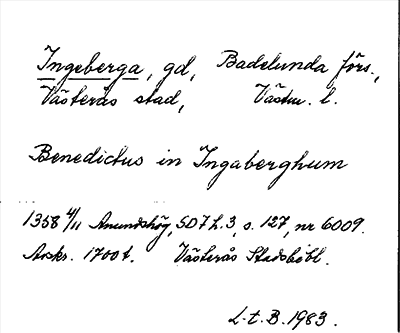 Ingeberga, gd, Badelunda förs.,
Västerås stad, Västm. l.
Benedictus in Ingaberghum
1358 4/11 Anundshög, SD7 h.3, s. 127, nr 6009.
Avskr. 1700t. Västerås Stadsbibl.
L.t.B. 1983.